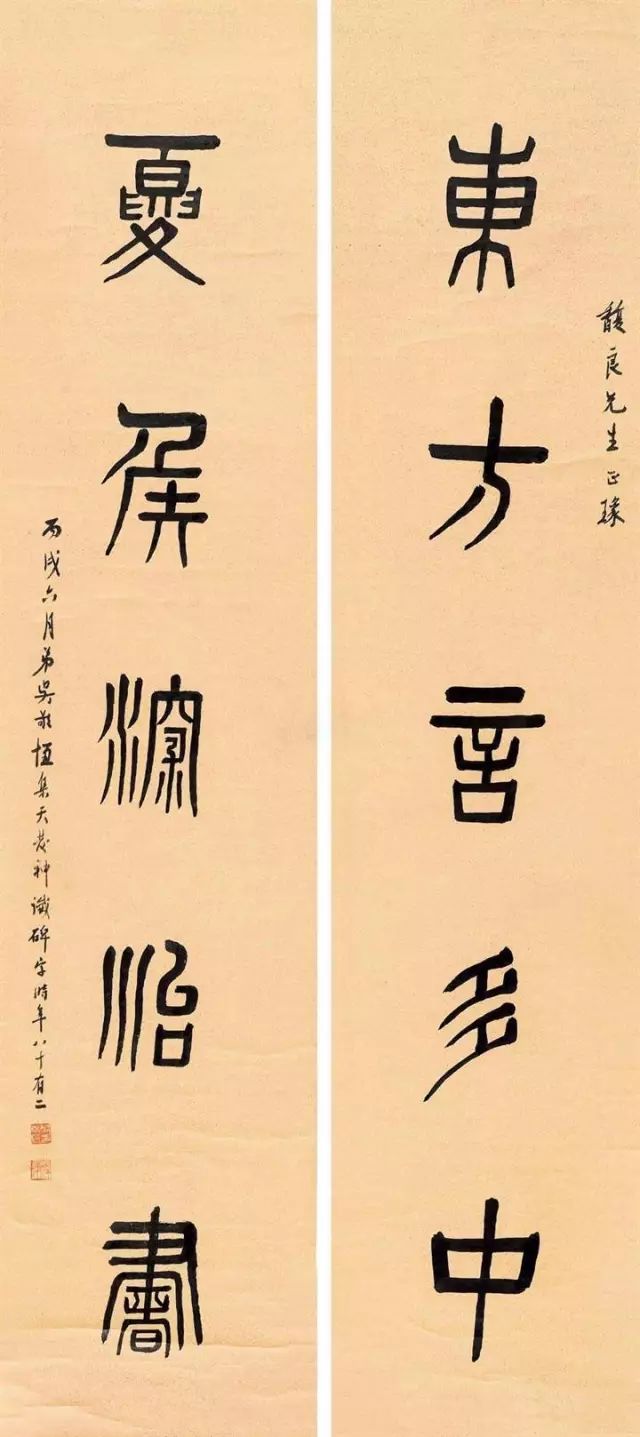 馥良先生正
東方言多中
夏侯深治書
丙戌六月弟吳敬恆集天發神讖碑字時年八十有二